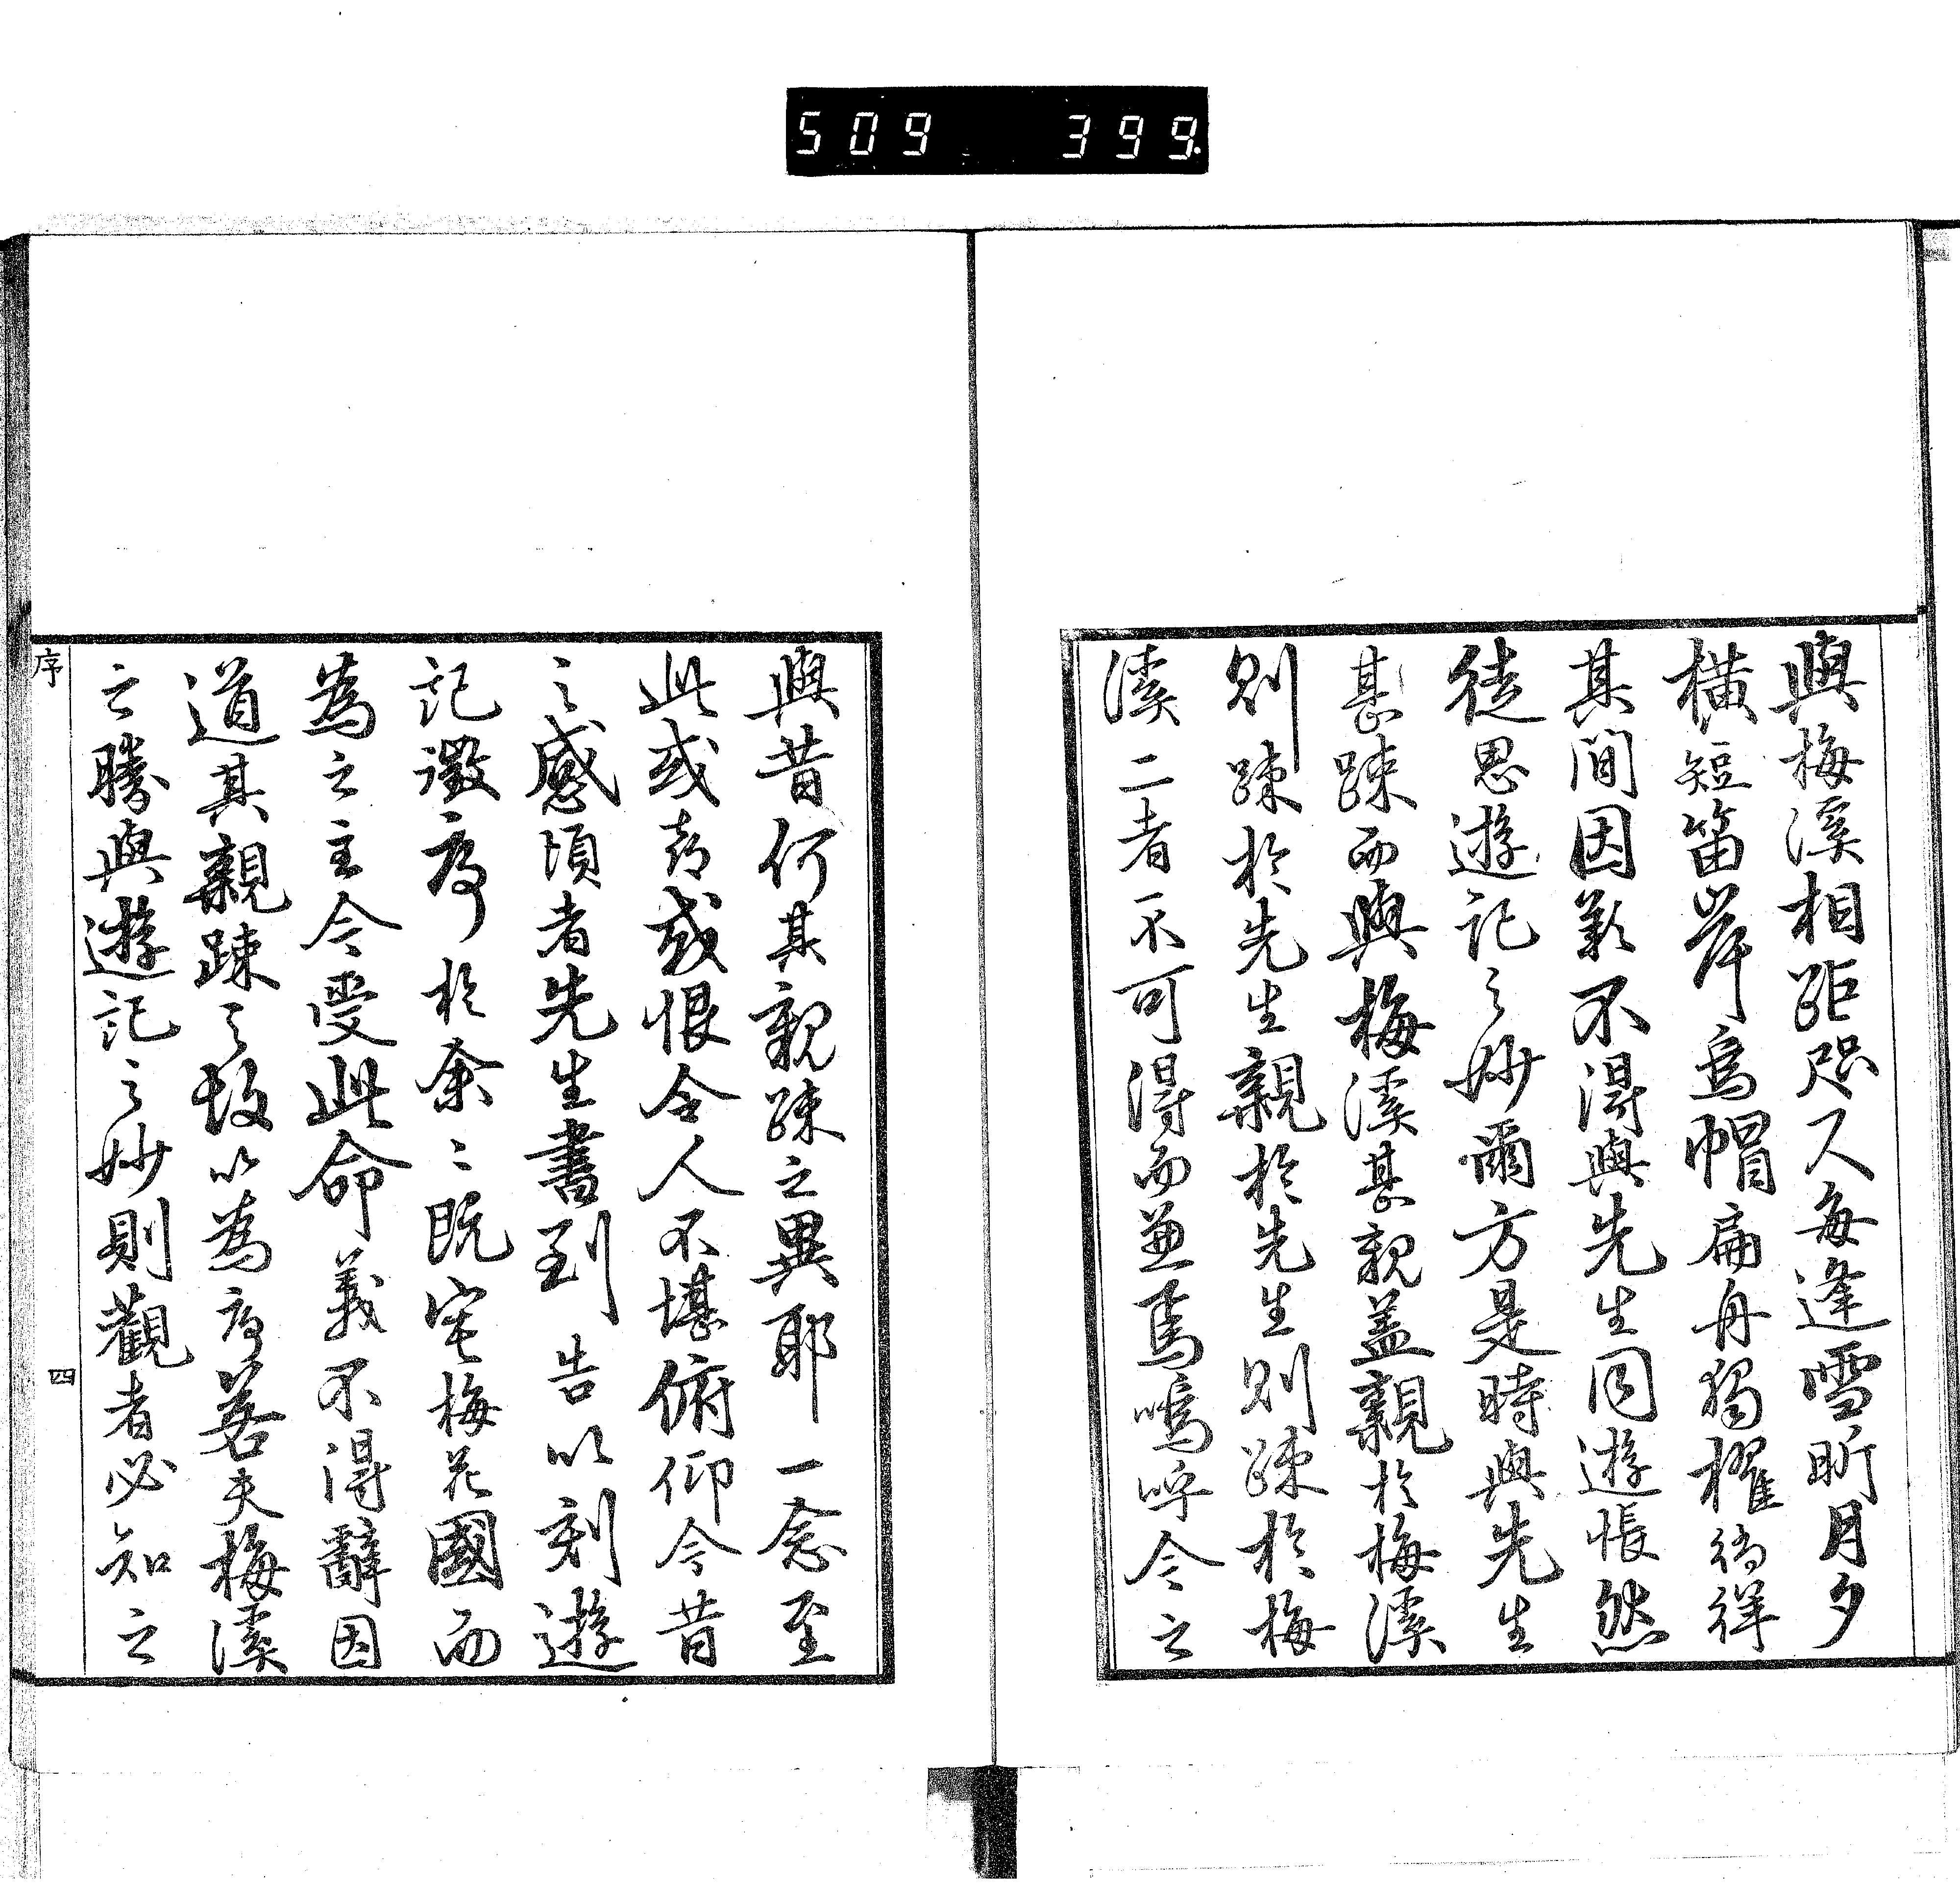 509 399
與梅溪相距咫尺每逢雪昕月夕
橫短笛岸烏帽扁舟獨櫂徜徉
其間因歎不得與先生同遊悵然
徒思遊記之妙爾方是時與先生
甚踈而與梅溪甚親蓋親於梅溪
則踈於先生親於先生則踈於梅
溪二者不可得而兼焉嗚呼今之
與昔何其親踈之異耶一念至
此或喜或恨令人不堪俯仰今昔
之感頃者先生書到告以刻遊
記徵序於余〻既宅梅花國而
為之主今受此命義不得辭因
道其親踈之故以為序若夫梅溪
之勝與遊記之妙則觀者必知之
序
四